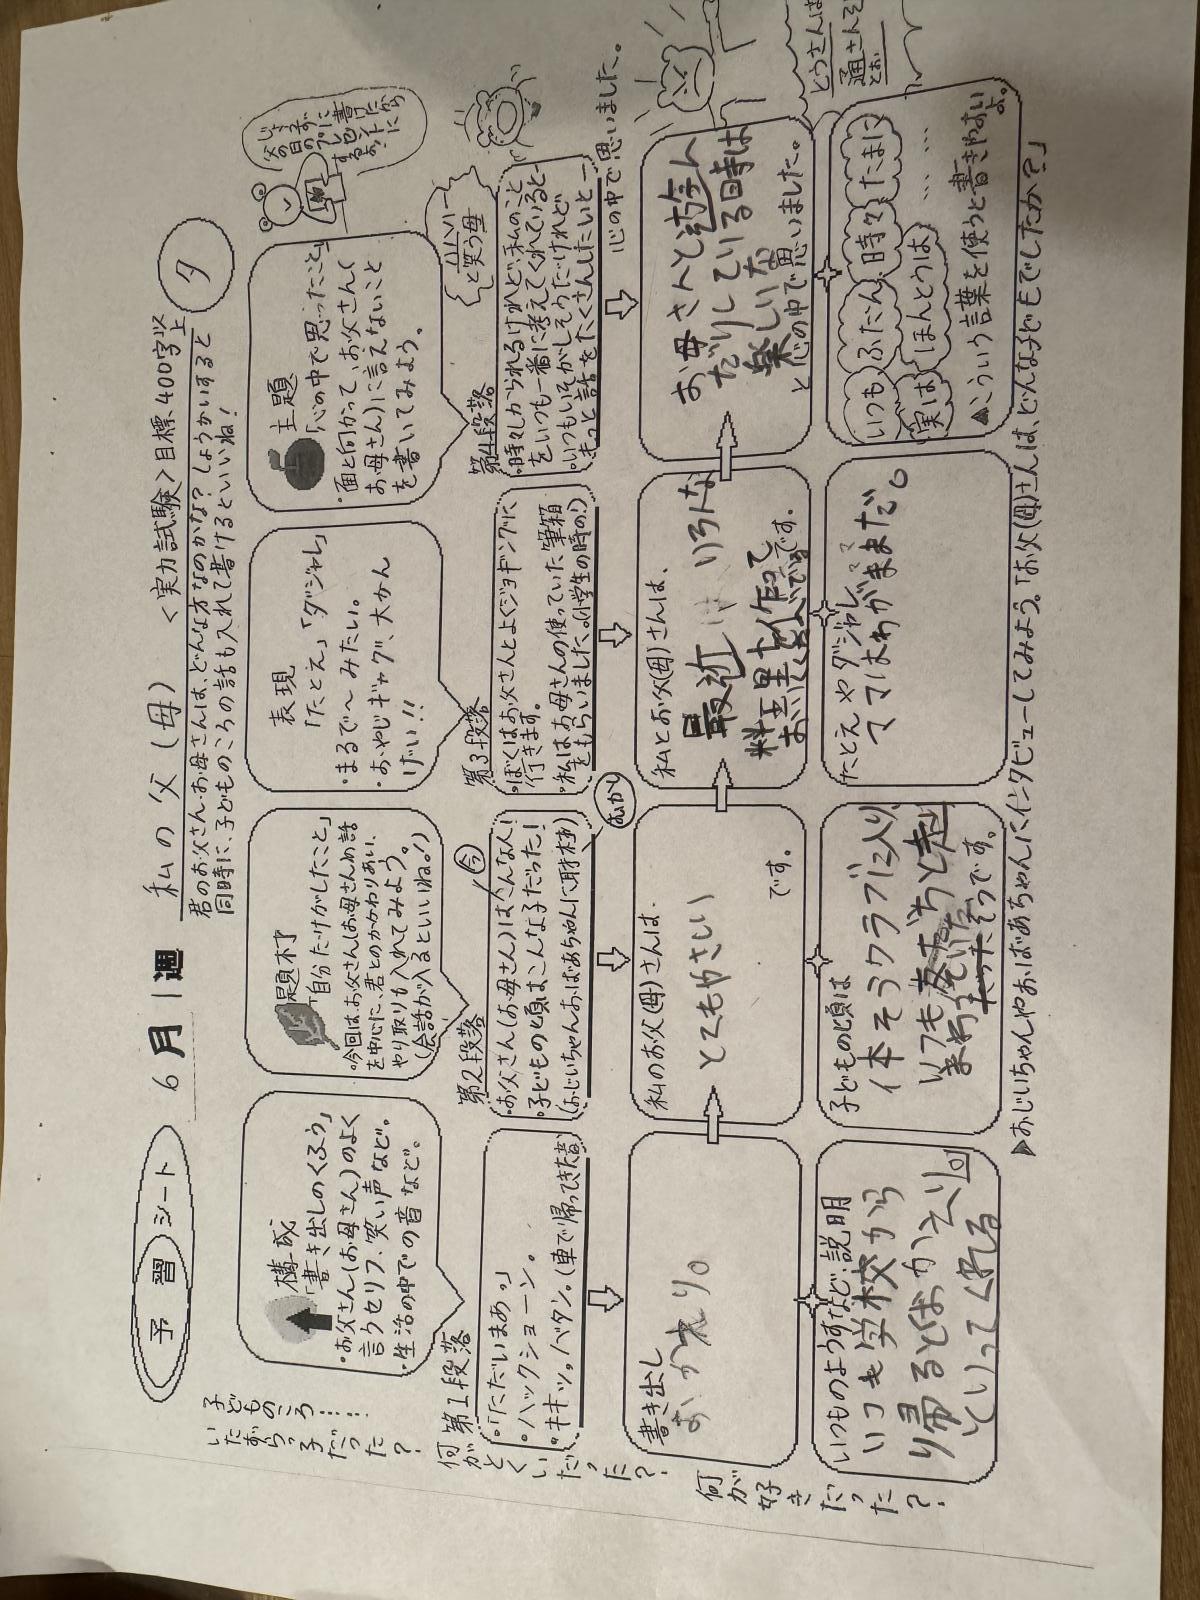 予習シート 6月1週 私の父(母) <実力試験>目標400字以上 タ
君のお父さん・お母さんは、どんな方なのかな?しょうかいすると
同時に、子どものころの話も入れて書けるといいね!
父の日の
プレゼント
子どものころ…
いたずらっ子だった?
何がとくいだった?
何が好きだった?
構成
「書き出しのくふう」
・お父さん(お母さん)のよく
言うセリフ、笑い声など。
・生活の中での音など。
題材
「自分だけがしたこと」
・今回は、お父さん(お母さん)の話
を中心に、君とのかかわりあい、
やり取りも入れてみよう。
(会話が入るといいね。)
表現
「たとえ」「ダジャレ」
・まるで〜みたい。
・おやじギャグ、大かん
げい!!
主題
「心の中で思ったこと」
・面と向かって、お父さん(
お母さん)に言えないこと
を書いてみよう。
第1段落
・「ただいまあっ」
・ハックショーン。
・キキッ。バタン。(車で帰ってきた音)
第2段落
今
・お父さん(お母さん)はこんな人!
・子どもの頃はこんな子だった!
(おじいちゃんおばあちゃんに取材)
むかし
第3段落
・ぼくはお父さんとよくジョギングに
行きます。
・私はお母さんの使っていた筆箱
をもらいました。(小学生の時の!)
第4段落
ハハハ
と笑う母
・時々しかられるけれど、私のこと
をいつも一番に考えてくれていると―
・いつもいそがしそうだけれど
もっと話をたくさんしたいと―
心の中で思いました。
書き出し
おかえり。
私のお父(母)さんは、
とてもやさしい
です。
私とお父(母)さんは、
最近は いろんな
料理を作って
です。
お母さんと遊ん
だりしている時は
楽しいな
と心の中で思いました。
いつものようすなど説明
いつも学校から
帰るとおかえり
といってくれる
子どもの頃は
体そうクラブに入り
いつも友だちと走り
まわっていた
そうです。
たとえやダジャレ
ママはわがままだ。
いつも ふだん 時々 たまに
実は ほんとうは ……
▲こういう言葉を使うと書きやすいよ。
▶おじいちゃんやおばあちゃんにインタビューしてみよう。「お父(母)さんは、どんな子どもでしたか?」